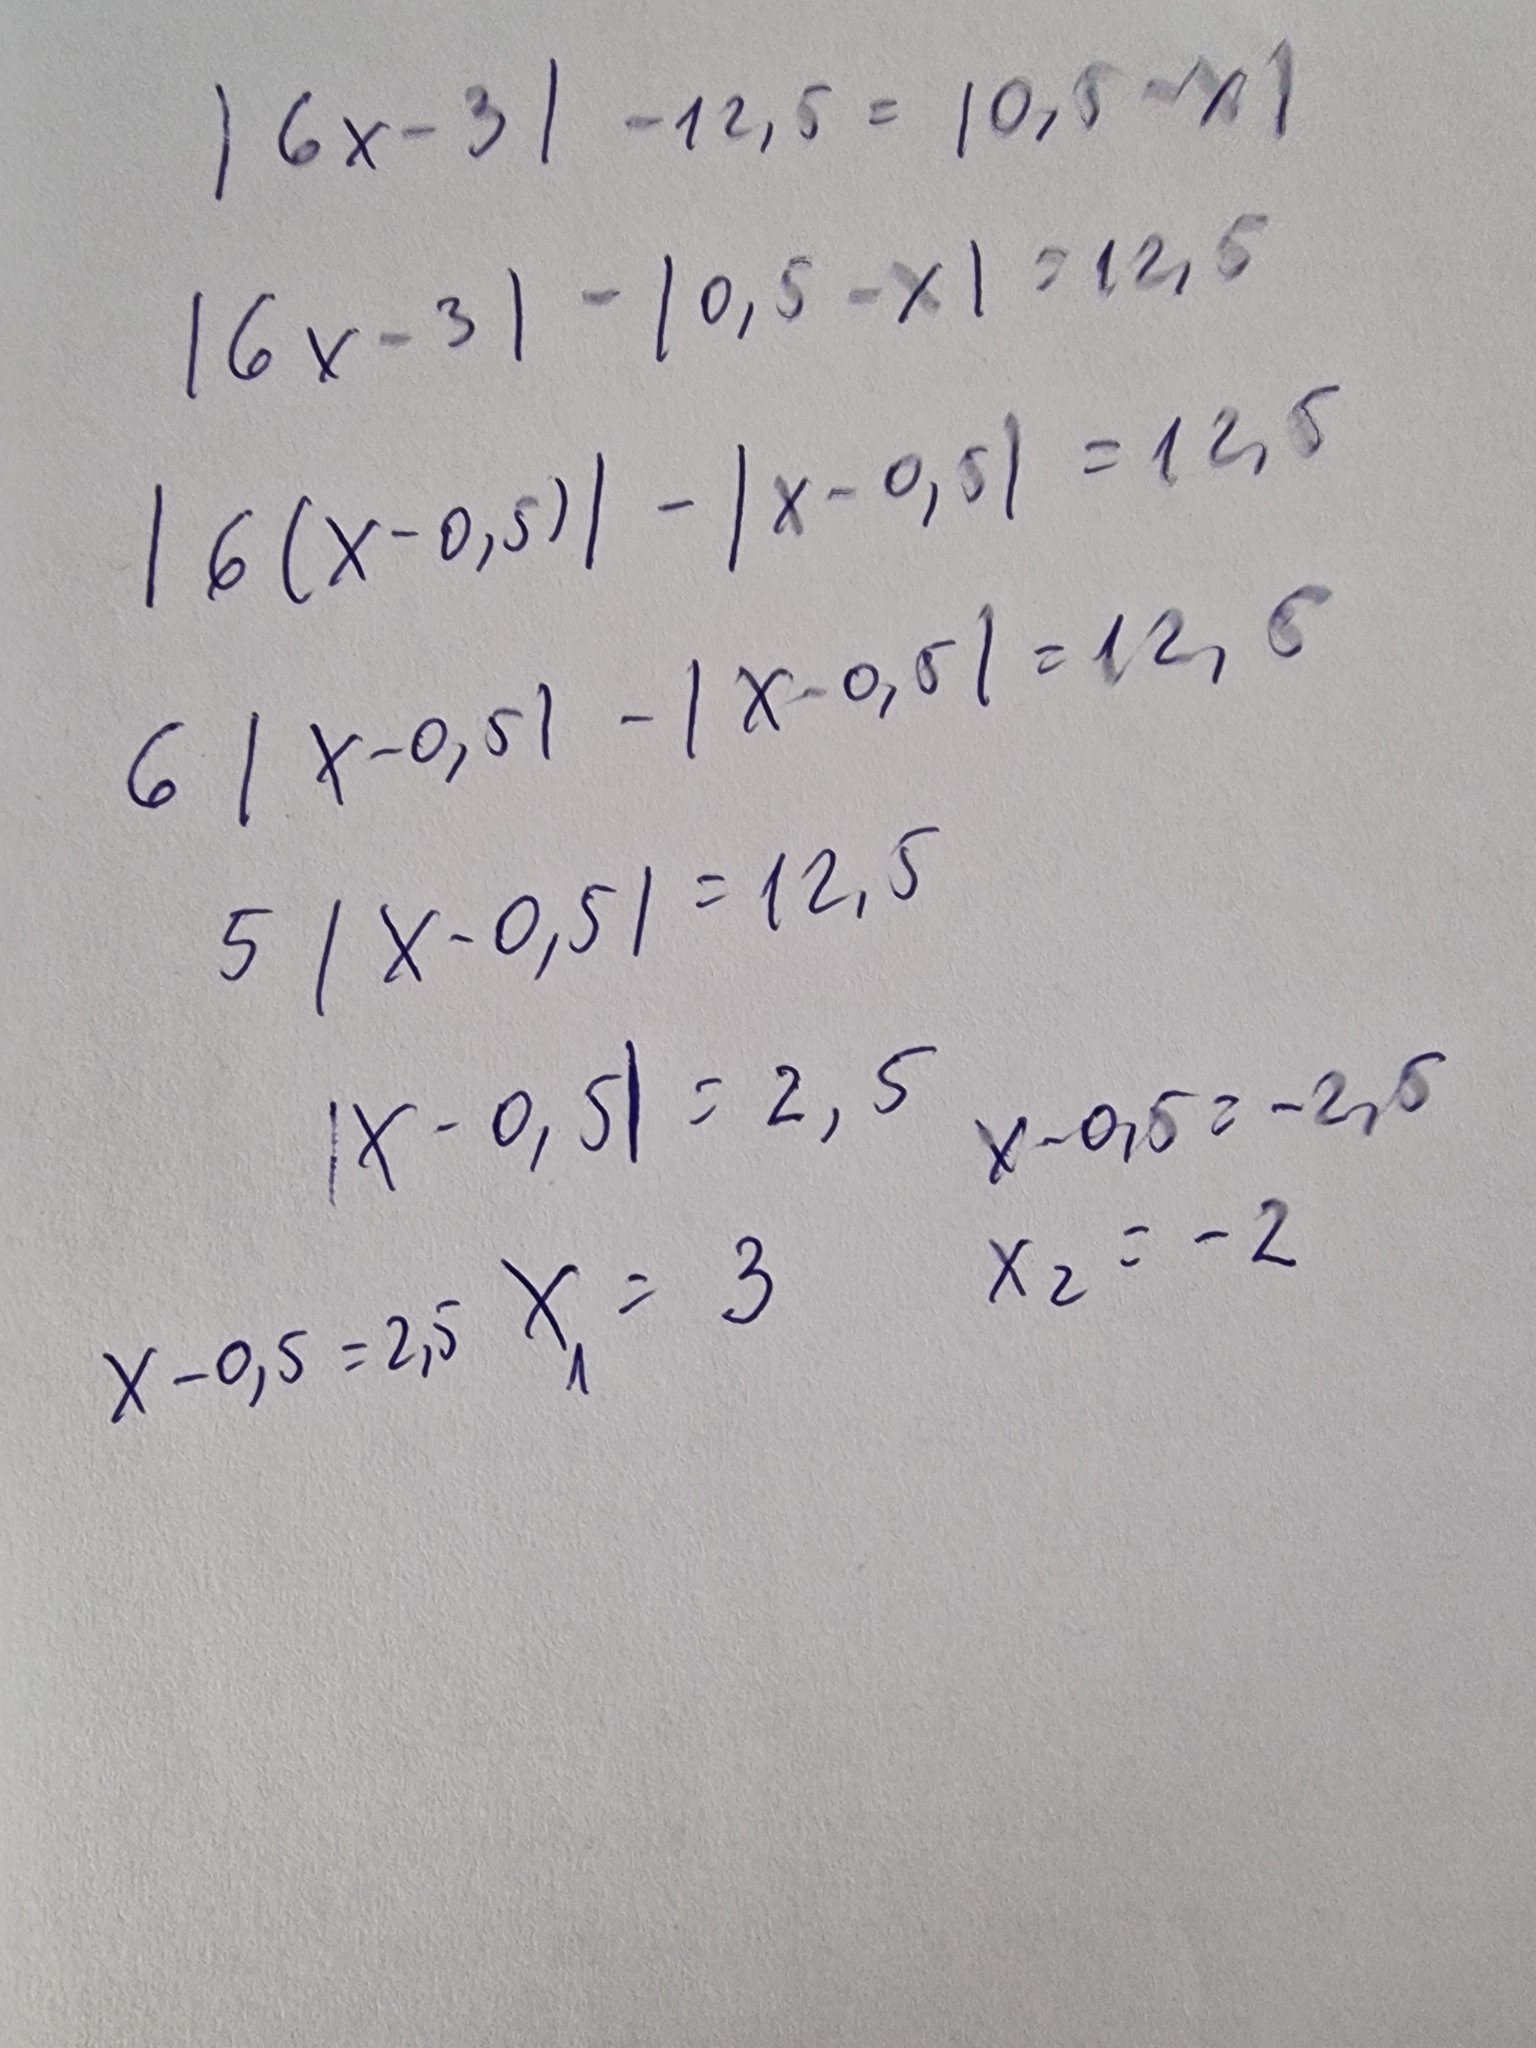 |6x-3| -12,5 = |0,5-x|
|6x-3| - |0,5-x| = 12,5
|6(x-0,5)| - |x-0,5| = 12,5
6|x-0,5| - |x-0,5| = 12,5
5|x-0,5| = 12,5
|x-0,5| = 2,5 x-0,5 = -2,5
x-0,5 = 2,5 x₁ = 3 x₂ = -2